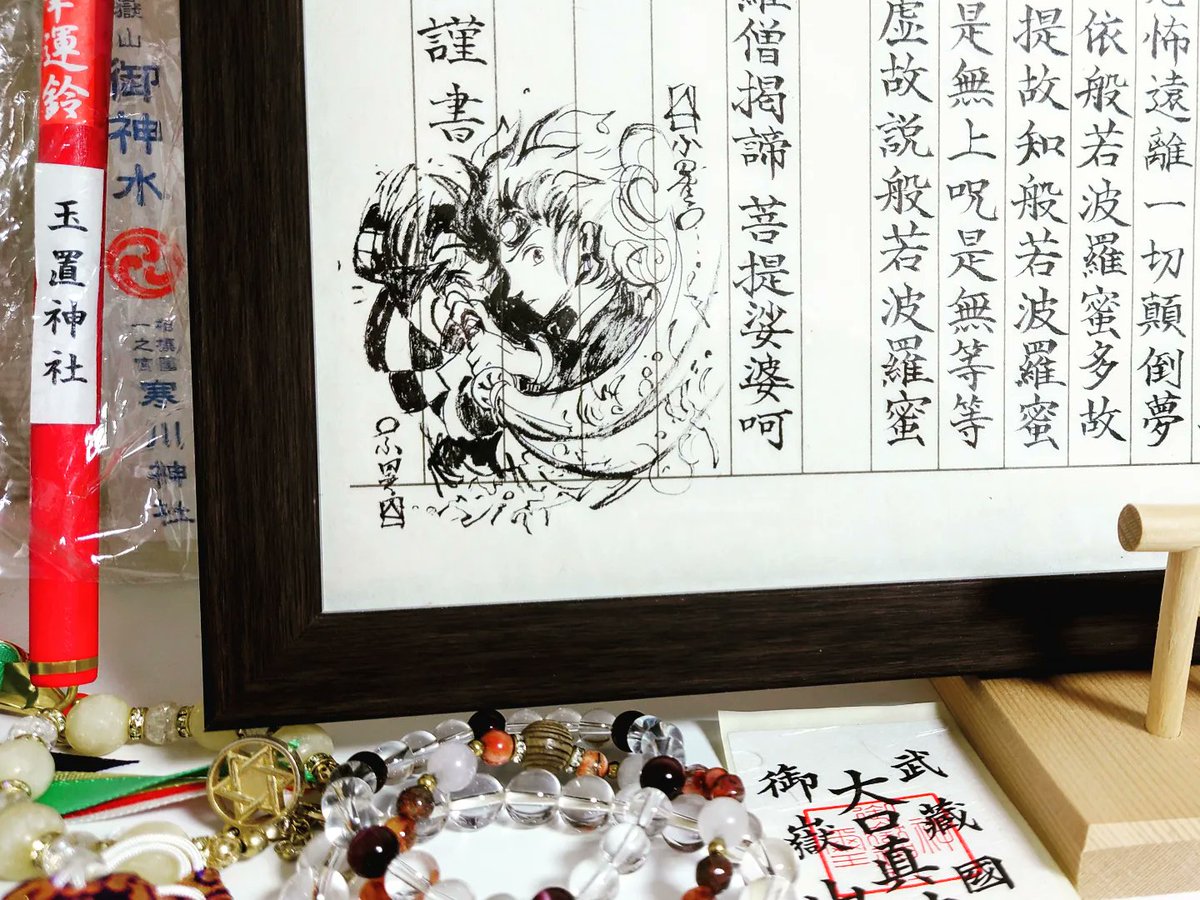 怖遠離一切顛倒夢
依般若波羅蜜多故
提故知般若波羅蜜
是無上呪是無等等
虚故説般若波羅蜜
羅僧揭諦 菩提娑婆呵
謹書
嶽山
御神水
相模國
一之宮
寒川神社
運鈴
玉置神社
武藏國
大口真
御嶽